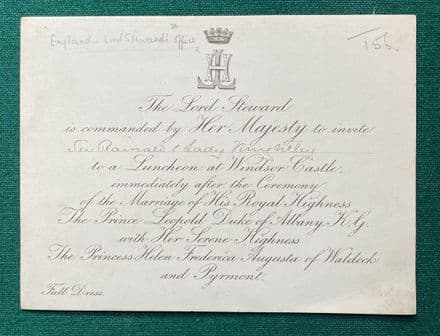 "England - Lord Steward's Office"
T5b
The Lord Steward
is commanded by Her Majesty to invite
Sir & Lady
to a Luncheon at Windsor Castle,
immediately after the Ceremony
of the Marriage of His Royal Highness
The Prince Leopold Duke of Albany, K.G.
with Her Serene Highness
The Princess Helen Frederica Augusta of Waldeck
and Pyrmont.
Full Dress.